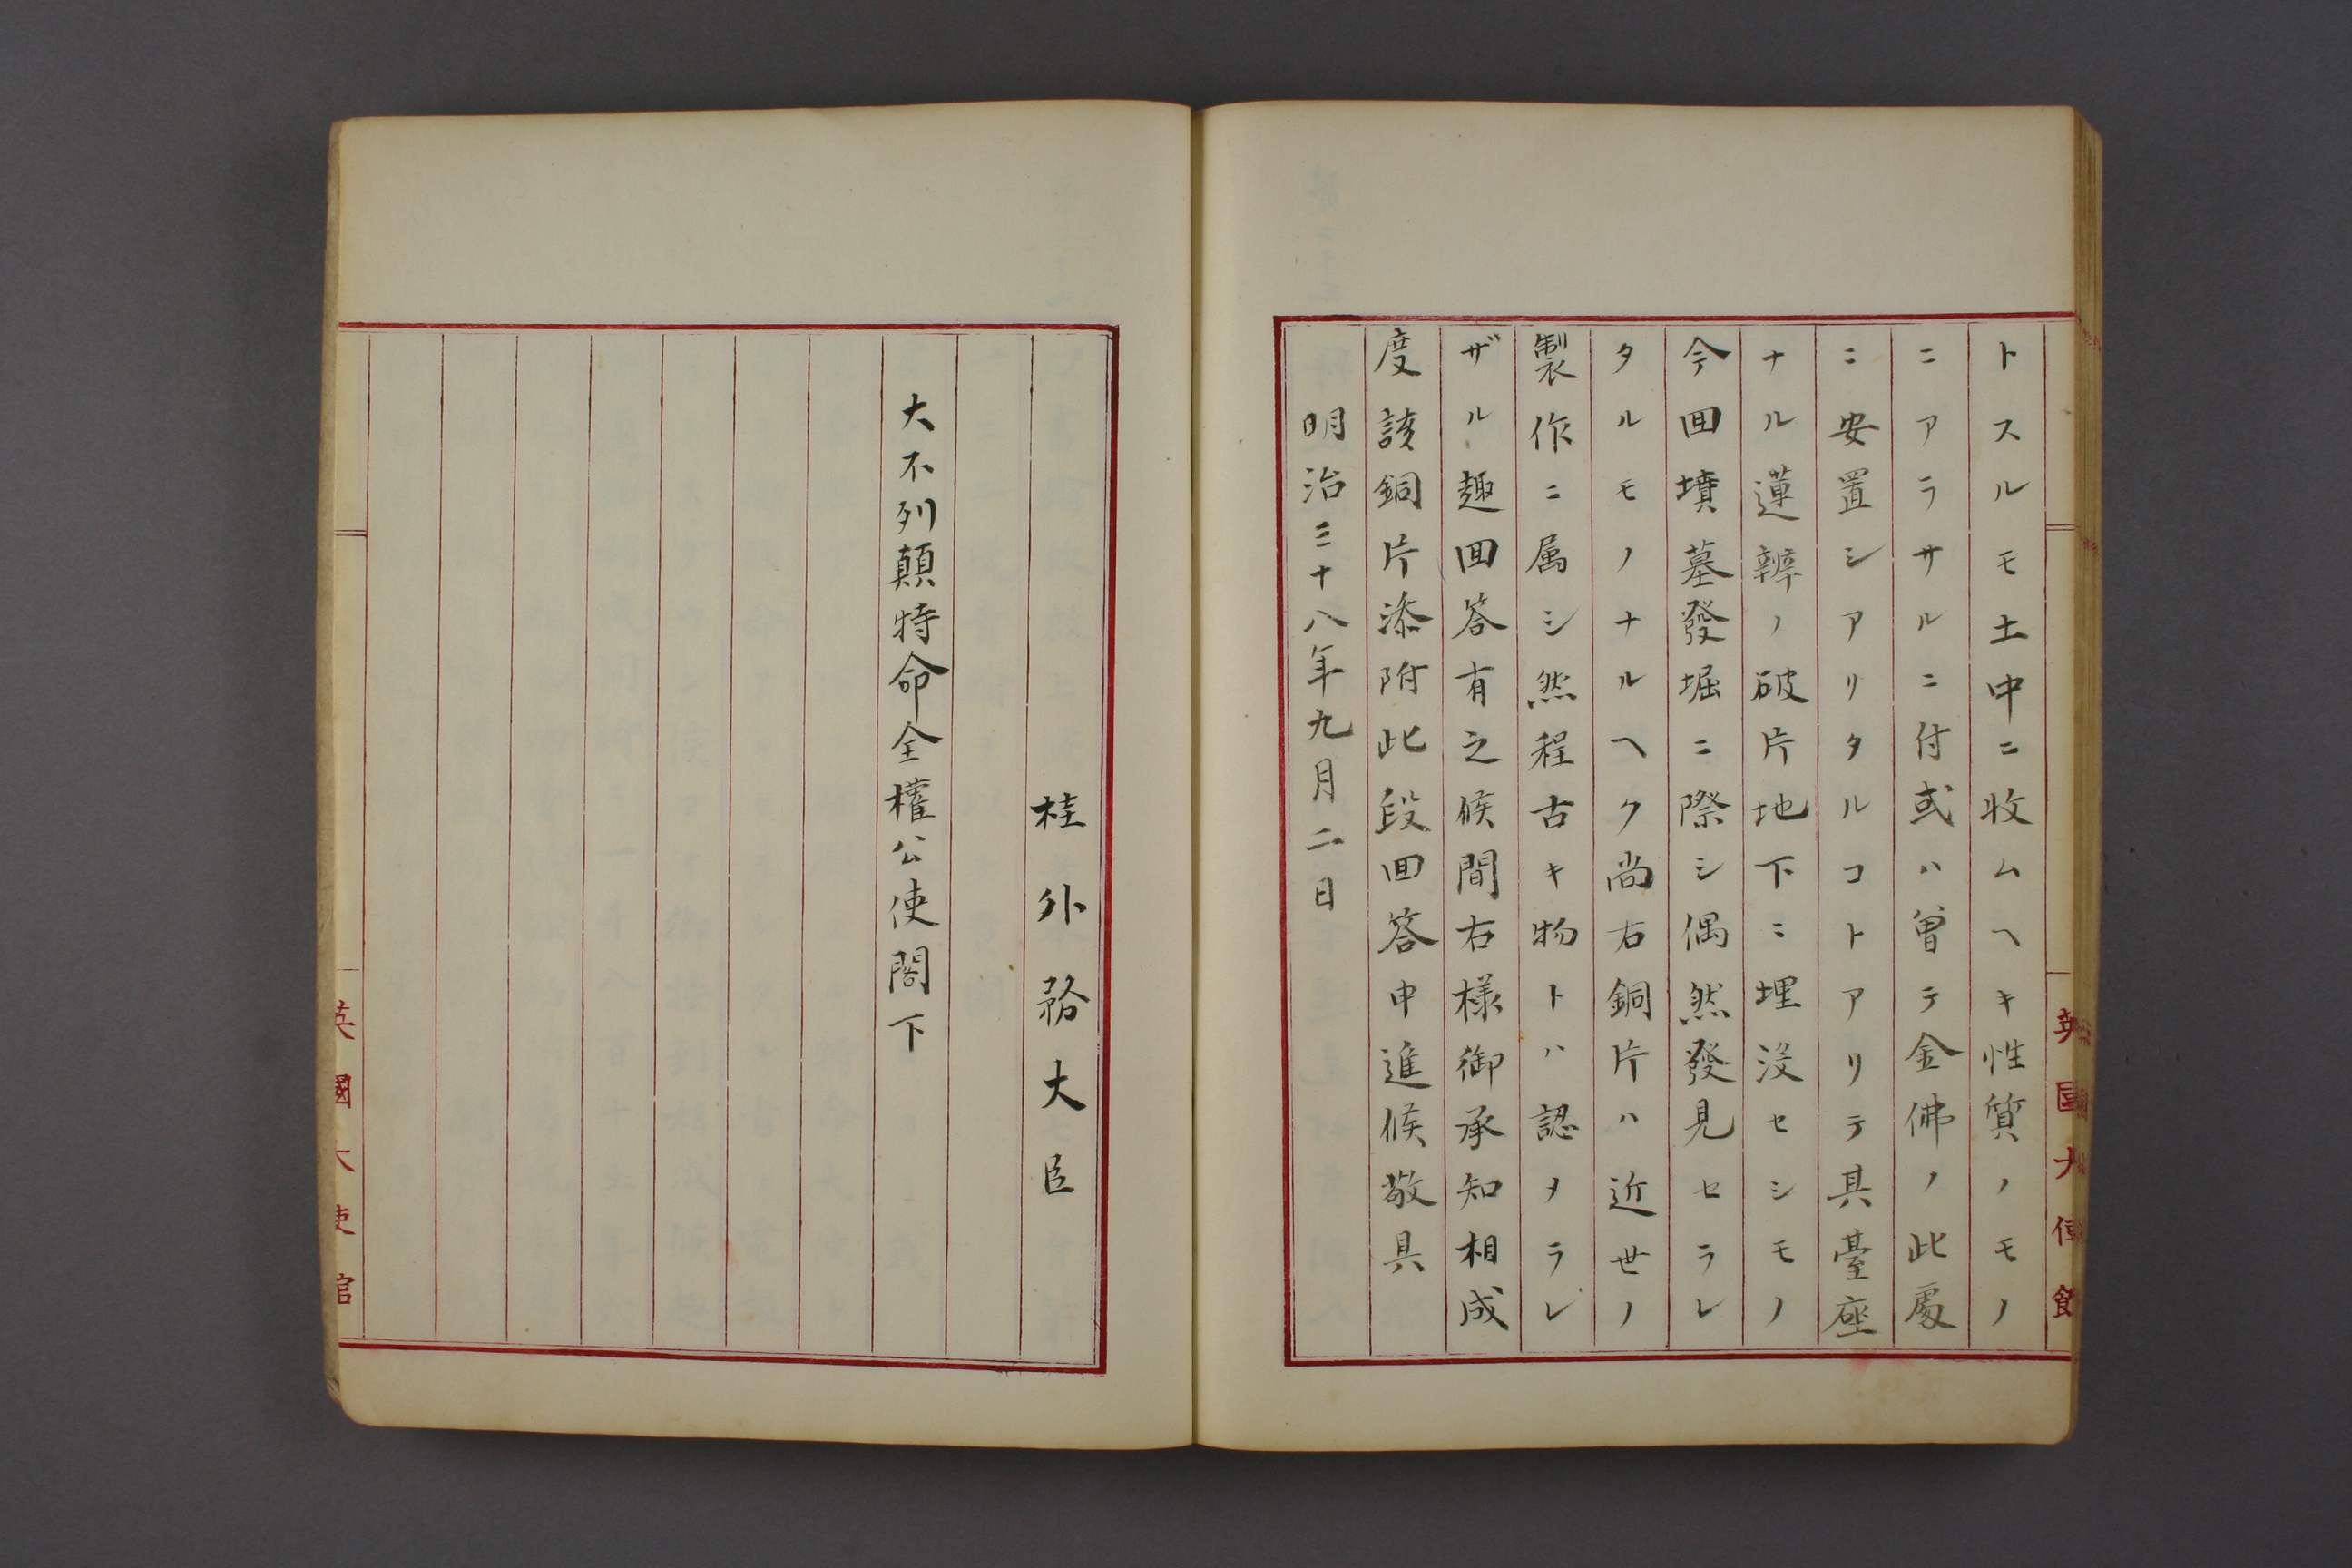 トスルモ土中ニ收ムヘキ性質ノモノ
ニアラサルニ付或ハ曾テ金佛ノ此處
ニ安置シアリタルコトアリテ其臺座
ナル蓮辨ノ破片地下ニ埋沒セシモノ
今回墳墓發堀ニ際シ偶然發見セラレ
タルモノナルヘク尚右銅片ハ近世ノ
製作ニ属シ然程古キ物トハ認メラレ
ザル趣回答有之候間右様御承知相成
度該銅片添附此段回答申進候敬具
明治三十八年九月二日
英國大使館
桂外務大臣
大不列顛特命全權公使閣下
英國大使館